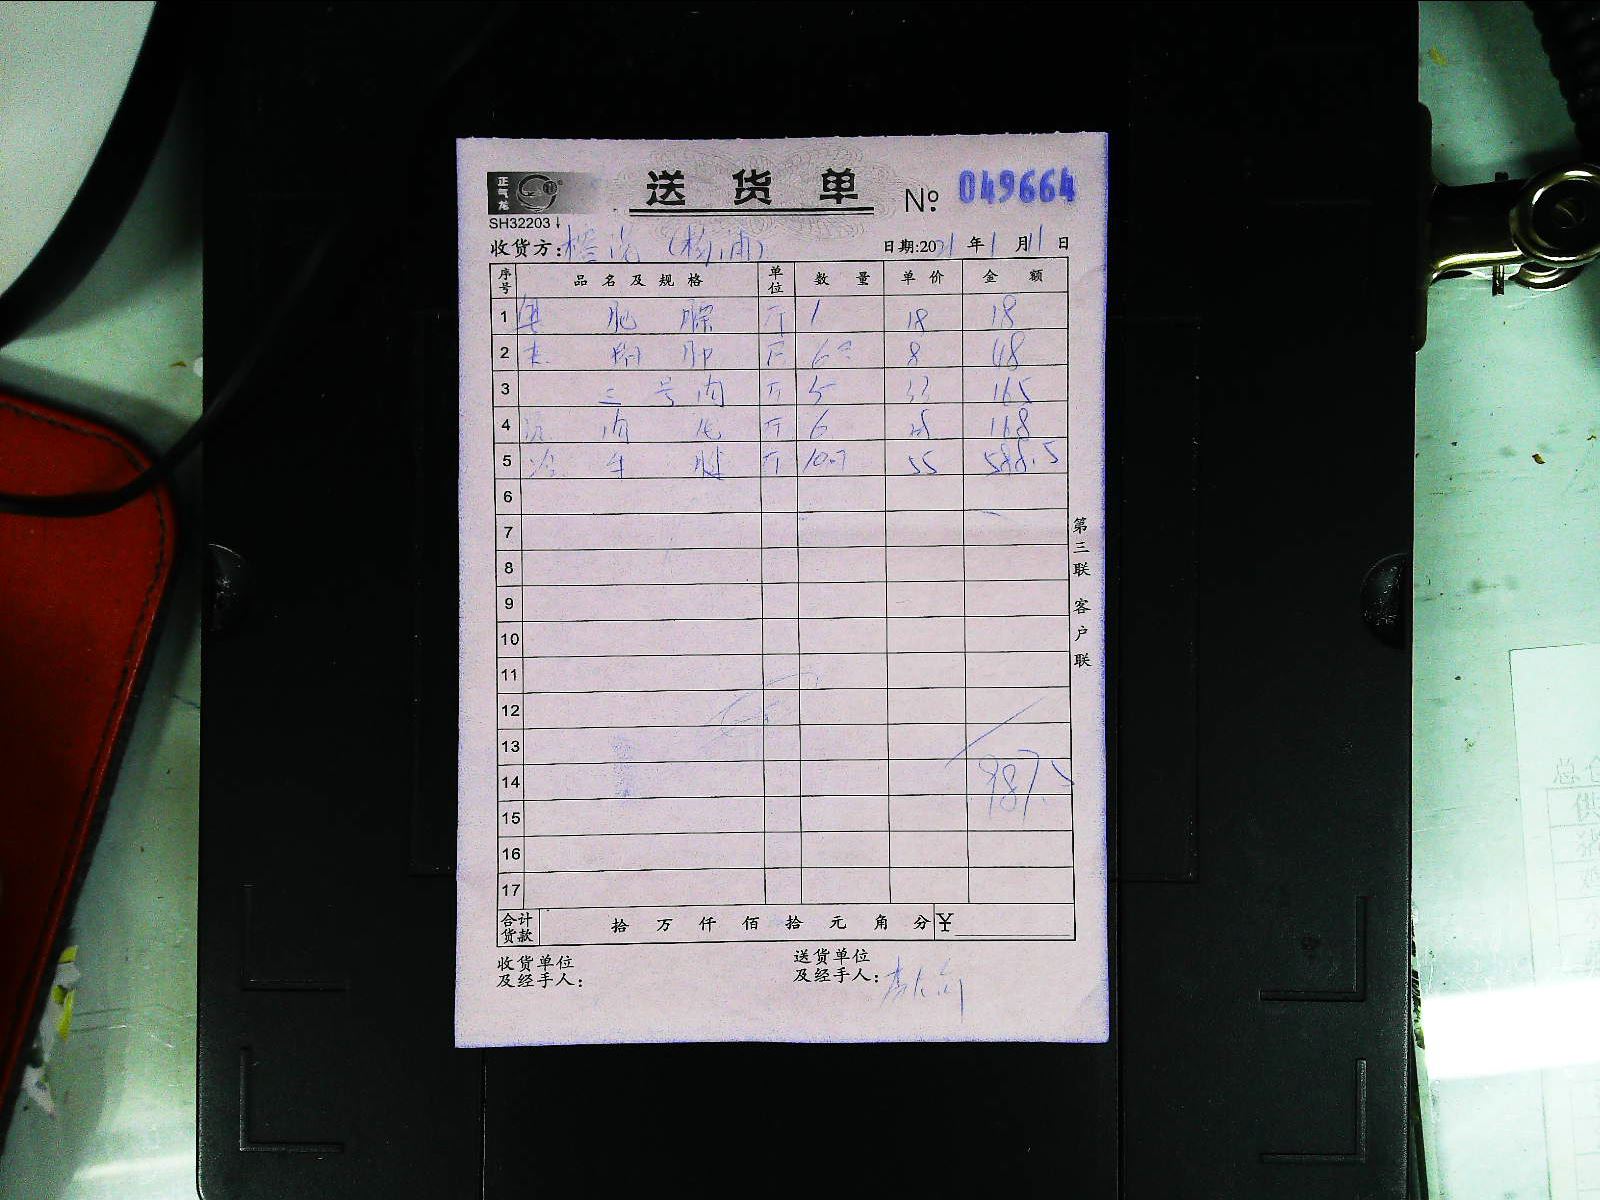 正气龙
送货单 № 049664
SH32203
收货方: (杨浦) 日期:2021年1月11日
序号 品名及规格 单位 数量 单价 金额
1 斤 1 18 18
2 斤 6 8 48
3 三号肉 斤 5 33 165
4 肉 斤 6 28 168
5 冷 牛腱 斤 10.7 55 588.5
6
7
8
9
10
11
12
13
14 987.5
15
16
17
合计货款 拾 万 仟 佰 拾 元 角 分 ¥
收货单位
及经手人:
送货单位
及经手人:
第三联 客户联